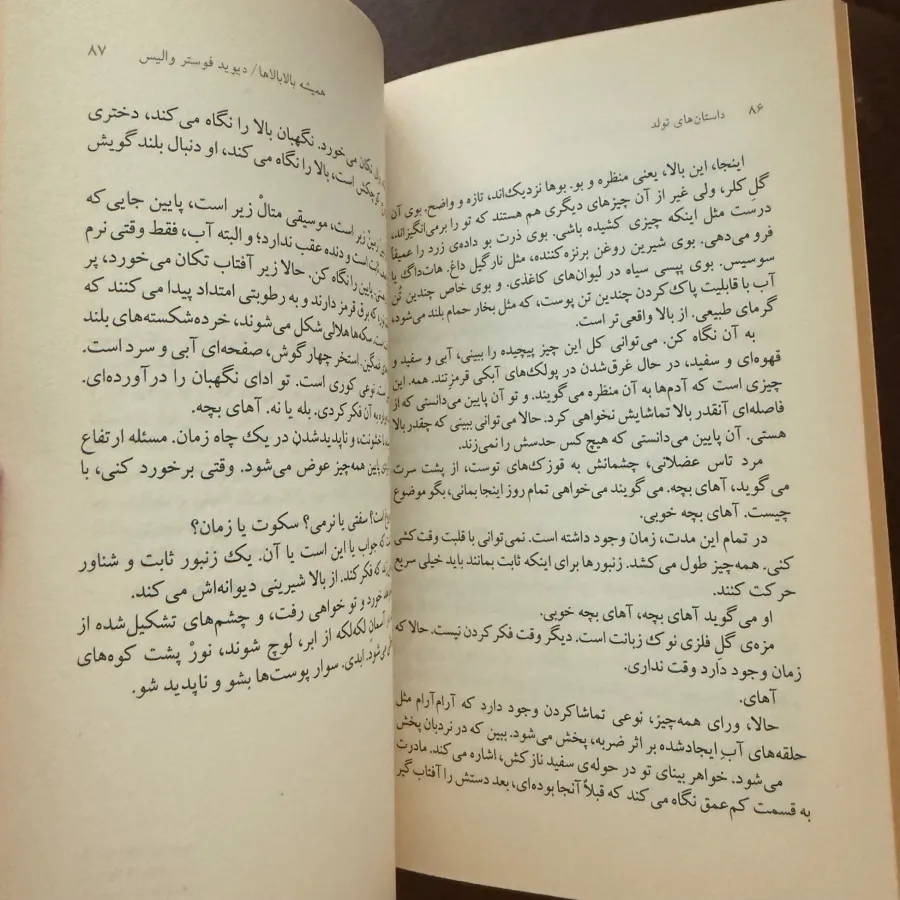 ۸۶
داستان‌های تولد
اینجا، این بالا، یعنی منظره و بو. بوها نزدیک‌اند، تازه و واضح. بوی آن
گلِ کلر، ولی غیر از آن چیزهای دیگری هم هستند که تو را برمی‌انگیزاند،
درست مثل اینکه چیزی کشیده باشی. بوی ذرت بو داده‌ی زرد را عمیقاً
فرو می‌دهی. بوی شیرین روغن برنزه‌کننده، مثل نارگیل داغ. هات‌داگ یا
سوسیس. بوی پپسی سیاه در لیوان‌های کاغذی. و بوی خاص چندین تُن
آب با قابلیت پاک‌کردن چندین تن پوست، که مثل بخار حمام بلند می‌شود،
گرمای طبیعی. از بالا واقعی‌تر است.
به آن نگاه کن. می‌توانی کل این چیز پیچیده را ببینی، آبی و سفید و
قهوه‌ای و سفید، در حال غرق‌شدن در پولک‌های آبکی قرمزِتند. همه. این
چیزی است که آدم‌ها به آن منظره می‌گویند. و تو آن پایین می‌دانستی که از
فاصله‌ای آنقدر بالا تماشایش نخواهی کرد. حالا می‌توانی ببینی که چقدر بالا
هستی. آن پایین می‌دانستی که هیچ‌کس حدسش را نمی‌زند.
مرد تاس عضلانی، چشمانش به قوزک‌های توست، از پشت سرت
می‌گوید، آهای بچه. می‌گویند می‌خواهی تمام روز اینجا بمانی، بگو موضوع
چیست. آهای بچه خوبی.
در تمام این مدت، زمان وجود داشته است. نمی‌توانی با قلبت وقت‌کشی
کنی. همه‌چیز طول می‌کشد. زنبورها برای اینکه ثابت بمانند باید خیلی سریع
حرکت کنند.
او می‌گوید آهای بچه، آهای بچه خوبی.
مزه‌ی گلِ فلزی نوک زبانت است. دیگر وقت فکر کردن نیست. حالا که
زمان وجود دارد وقت نداری.
آهای.
حالا، ورای همه‌چیز، نوعی تماشاکردن وجود دارد که آرام‌آرام مثل
حلقه‌های آبِ ایجادشده بر اثر ضربه، پخش می‌شود. ببین که در نردبان پخش
می‌شود. خواهر بینای تو در حوله‌ی سفید نازکش، اشاره می‌کند. مادرت
به قسمت کم‌عمق نگاه می‌کند که قبلاً آنجا بوده‌ای، بعد دستش را آفتاب‌گیر
همیشه بالابالاها/ دیوید فوستر والیس
۸۷
تکان می‌خورد. نگهبان بالا را نگاه می‌کند، دختری
است، بالا را نگاه می‌کند، او دنبال بلند گویش
زیر است، موسیقی متالْ زیر است، پایین جایی که
ثابت است و دنده عقب ندارد؛ و البته آب، فقط وقتی نرم
پایین را نگاه کن. حالا زیر آفتاب تکان می‌خورد، پر
که برق قرمز دارند و به رطوبتی امتداد پیدا می‌کنند که
سکه‌ها هلالی شکل می‌شوند، خرده‌شکسته‌های بلند
استخر چهارگوش، صفحه‌ای آبی و سرد است.
نوعی کوری است. تو ادای نگهبان را درآورده‌ای.
به آن فکر کردی. بله یا نه. آهای بچه.
خشونت، و ناپدیدشدنِ در یک چاه زمان. مسئله ارتفاع
پایین همه‌چیز عوض می‌شود. وقتی برخورد کنی، با
است؟ سفتی یا نرمی؟ سکوت یا زمان؟
که جواب یا این است یا آن. یک زنبور ثابت و شناور
که فکر کند. از بالا شیرینی دیوانه‌اش می‌کند.
خورد و تو خواهی رفت، و چشم‌های تشکیل‌شده از
آسمانِ لکه‌لکه از ابر، لوچ شوند، نورْ پشت کوه‌های
می‌شود. ابدی. سوار پوست‌ها بشو و ناپدید شو.